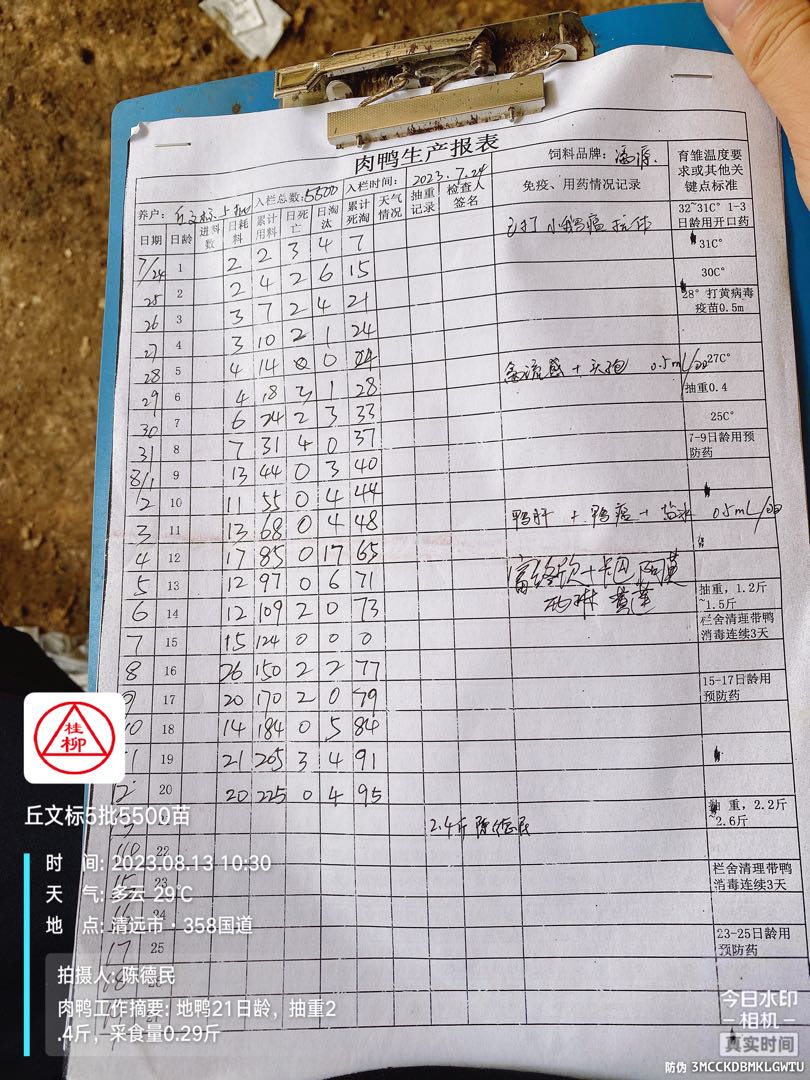 肉鸭生产报表
养户: 丘文标 入栏总数:5500 入栏时间: 2023.7.24 饲料品牌: 育雏温度要求或其他关键点标准
日期 日龄 进料数 日耗料 累计用料 日死亡 日淘汰 累计死淘 天气情况 抽重记录 检查人签名 免疫、用药情况记录
7/24 1 2 2 3 4 7 已打小鹅瘟抗体 32~31C° 1-3日龄用开口药
31C°
25 2 2 4 2 6 15 30C°
26 3 3 7 2 4 21 28° 打黄病毒疫苗0.5m
27 4 3 10 2 1 24
28 5 4 14 0 0 24 禽流感+ 0.5mL/ 27C°
29 6 4 18 3 1 28 抽重0.4
30 7 6 24 2 3 33 25C°
31 8 7 31 4 0 37 7-9日龄用预防药
8/1 9 13 44 0 3 40
2 10 11 55 0 4 44
3 11 13 68 0 4 48 鸭肝 + 鸭瘟 + 0.5mL/
4 12 17 85 0 17 65
5 13 12 97 0 6 71 抽重,1.2斤~1.5斤
6 14 12 109 2 0 73 栏舍清理带鸭消毒连续3天
7 15 15 124 0 0 0
8 16 26 150 2 2 77 15-17日龄用预防药
9 17 20 170 2 0 79
10 18 14 184 0 5 84
11 19 21 205 3 4 91
12 20 20 225 0 4 95 抽重,2.2斤~2.6斤
2.4斤 陈德民
22
23 栏舍清理带鸭消毒连续3天
24
17 25 23-25日龄用预防药
桂柳
丘文标5批5500苗
时 间: 2023.08.13 10:30
天 气: 多云 29℃
地 点: 清远市·358国道
拍摄人: 陈德民
肉鸭工作摘要: 地鸭21日龄，抽重2
.4斤，采食量0.29斤
今日水印
相机
真实时间
防伪 3MCCKDBMKLGWTU